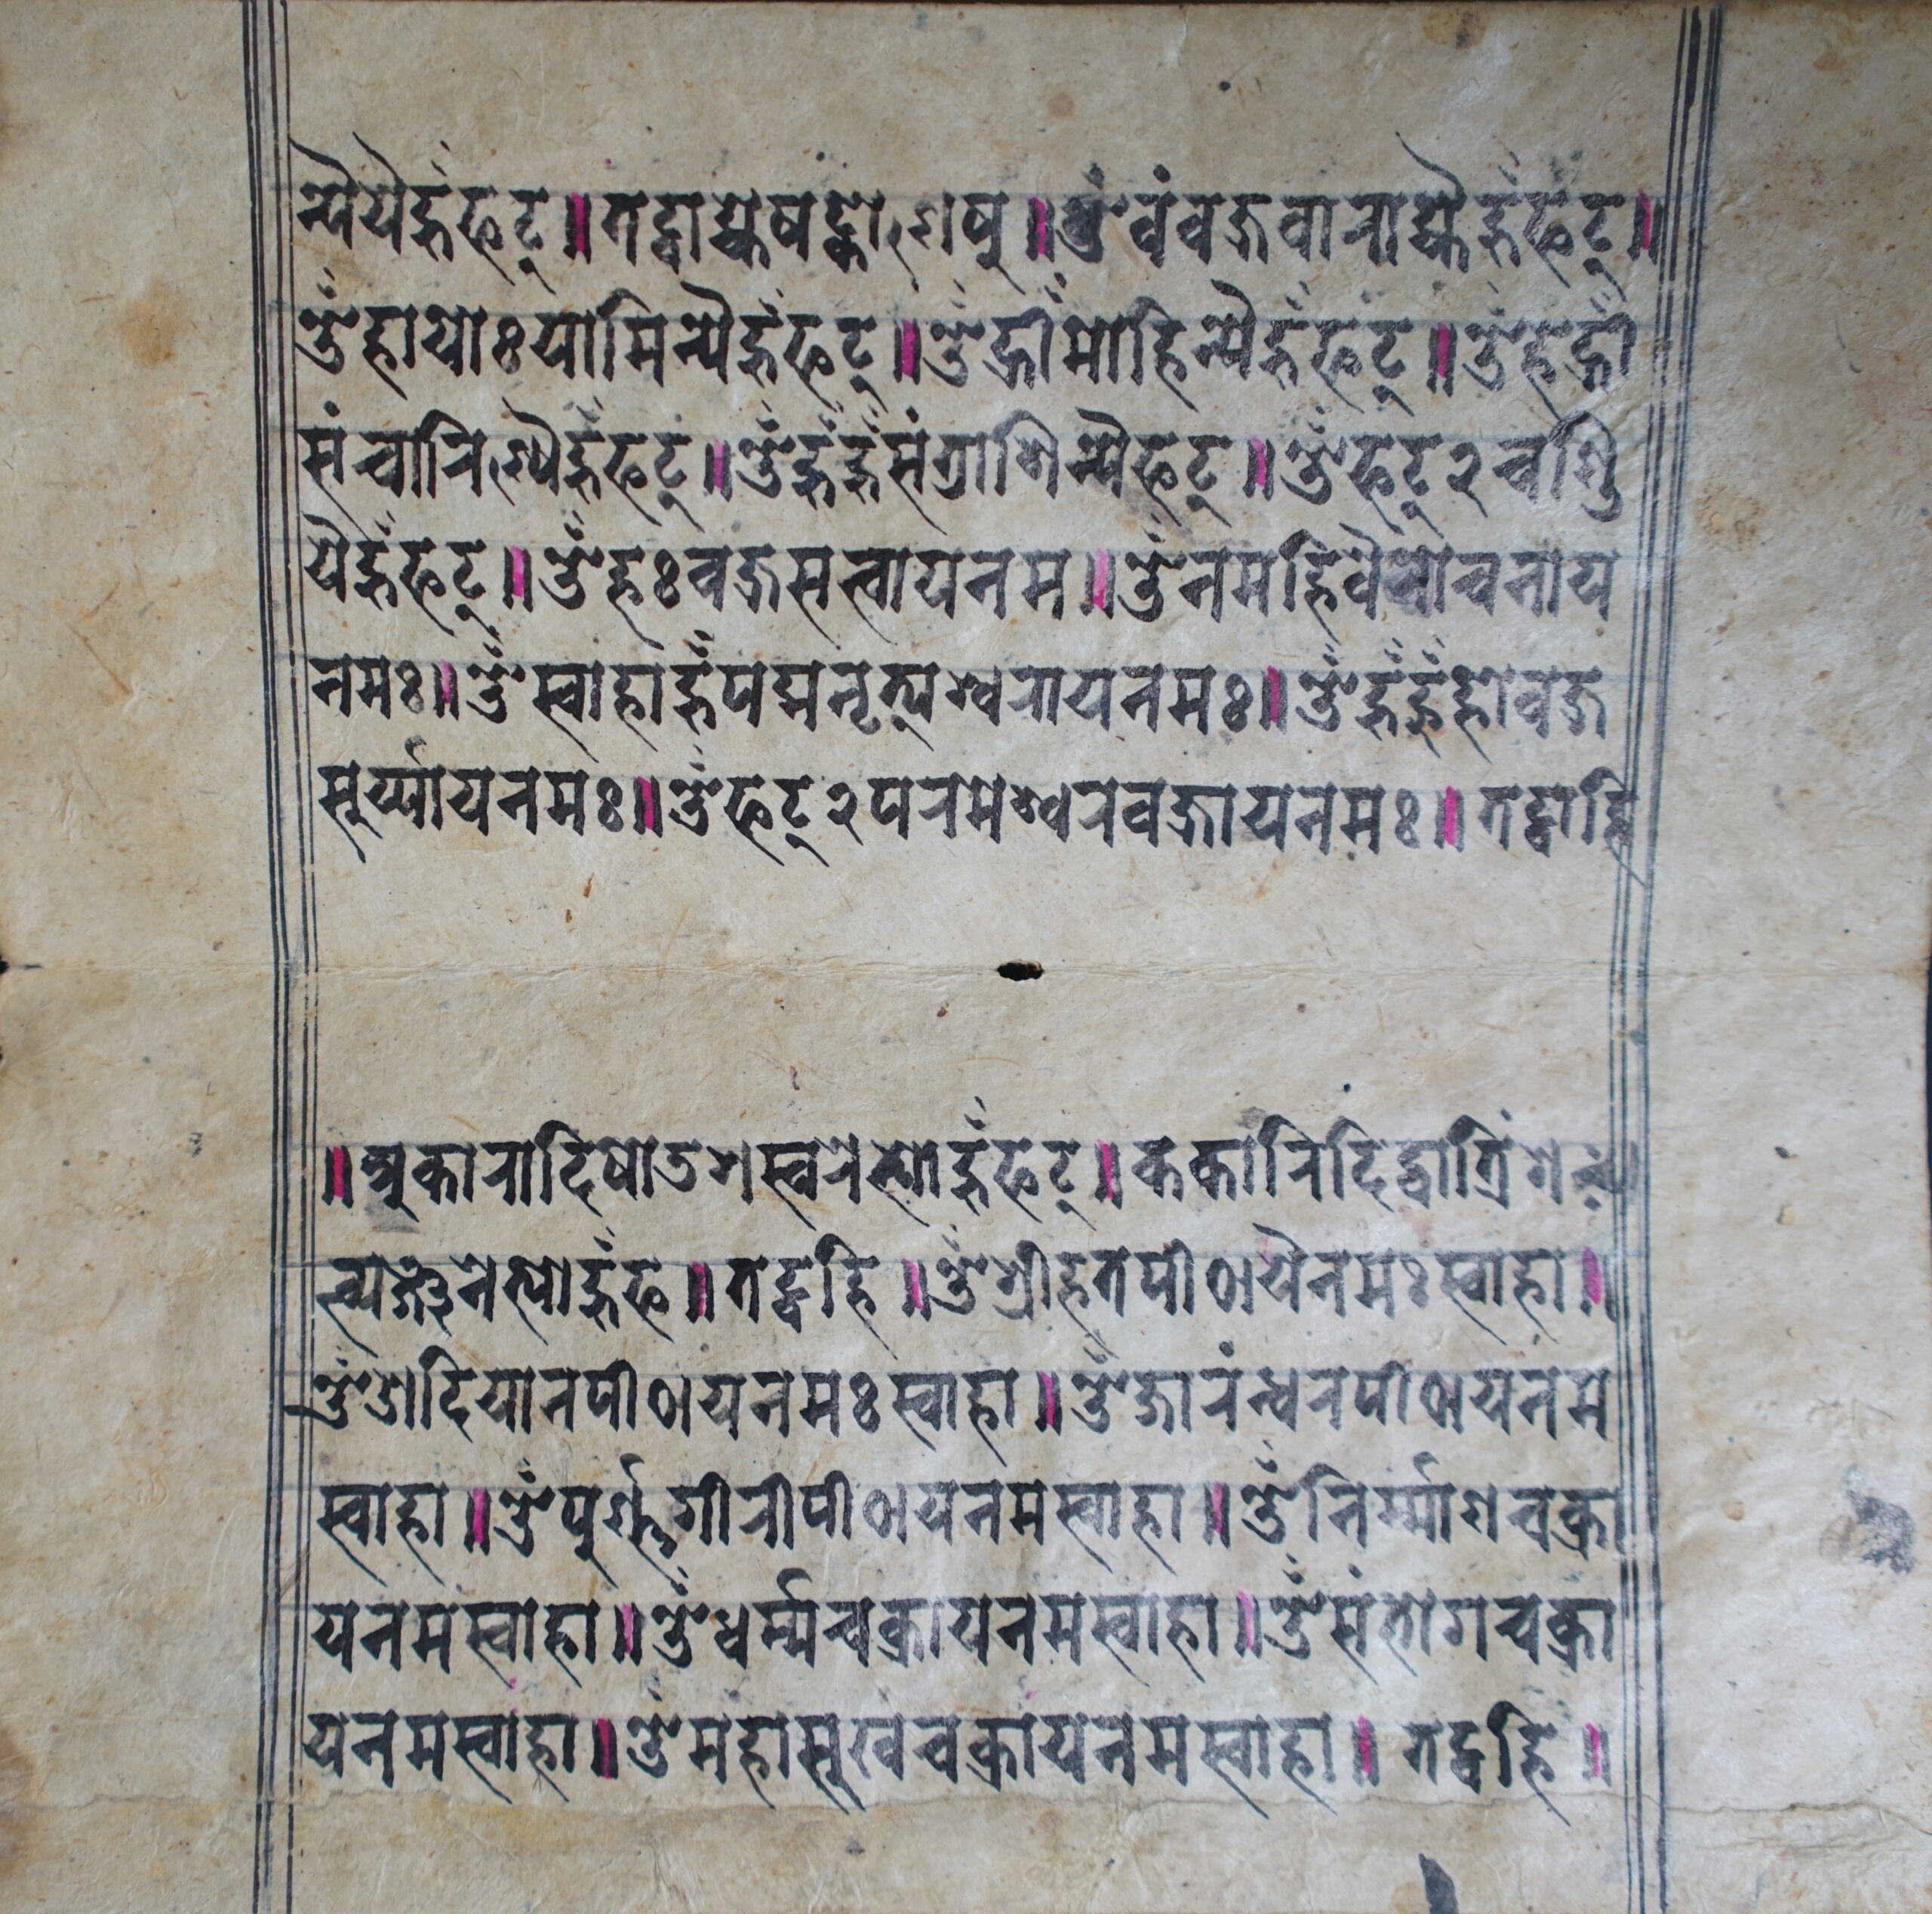 न्यैयैहूँफट्॥तद्वाह्येषट्कोणेषु॥ॐवंवज्रवाराह्यैहूँफट्॥
ॐहायोःयामिन्यैहूँफट्॥ॐह्रीँमोहिन्यैहूँफट्॥ॐहेह्रीँ
संचारिण्यैहूँफट्॥ॐहूँहूँसंत्राशिन्यैफट्॥ॐफट्२चण्डि
यैहूँफट्॥ॐहःवज्रसत्वायनम॥ॐनमहिवैरोचनाय
नमः॥ॐस्वाहाहूँपद्मनृत्यश्वरायनमः॥ॐहूँहूँहोवज्र
सूर्य्यायनमः॥ॐफट्२परमेश्वरवज्रायनमः॥तद्वाहि
॥अकारादिषोडशस्वरेभ्योहूँफट्॥ककारिदिद्वात्रिंश
त्व्यञ्जनेभ्योहूँफ॥तद्वहि॥ॐश्रीहतपीठायैनमःस्वाहा॥
ॐओदियानपीठायनमःस्वाहा॥ॐजारंन्धरपीठायनमे
स्वाहा॥ॐपुर्ण्णगीरीपीठायनमस्वाहा॥ॐनिर्म्माणचक्रा
यनमस्वाहा॥ॐधर्म्मचक्रायनमस्वाहा॥ॐसंभोगचक्रा
यनमस्वाहा॥ॐमहासूखचक्रायनमस्वाहा॥तद्वहि॥